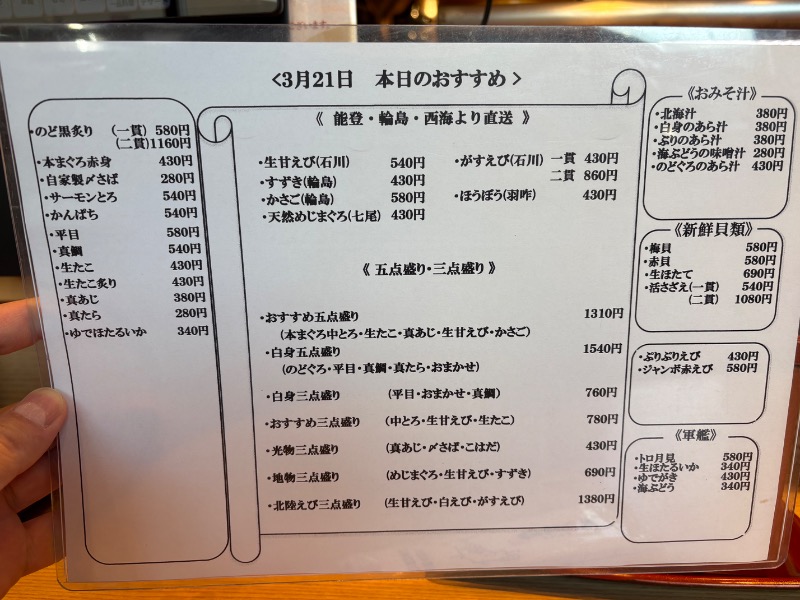 <3月21日 本日のおすすめ>
・のど黒炙り (一貫) 580円
(二貫)1160円
・本まぐろ赤身 430円
・自家製〆さば 280円
・サーモンとろ 540円
・かんぱち 540円
・平目 580円
・真鯛 540円
・生たこ 430円
・生たこ炙り 430円
・真あじ 380円
・真たら 280円
・ゆでほたるいか 340円
《 能登・輪島・西海より直送 》
・生甘えび(石川) 540円
・すずき(輪島) 430円
・かさご(輪島) 580円
・天然めじまぐろ(七尾) 430円
・がすえび(石川) 一貫 430円
二貫 860円
・ほうぼう(羽咋) 430円
《 五点盛り・三点盛り 》
・おすすめ五点盛り 1310円
(本まぐろ中とろ・生たこ・真あじ・生甘えび・かさご)
・白身五点盛り 1540円
(のどぐろ・平目・真鯛・真たら・おまかせ)
・白身三点盛り (平目・おまかせ・真鯛) 760円
・おすすめ三点盛り (中とろ・生甘えび・生たこ) 780円
・光物三点盛り (真あじ・〆さば・こはだ) 430円
・地物三点盛り (めじまぐろ・生甘えび・すずき) 690円
・北陸えび三点盛り (生甘えび・白えび・がすえび) 1380円
《おみそ汁》
・北海汁 380円
・白身のあら汁 380円
・ぶりのあら汁 380円
・海ぶどうの味噌汁 280円
・のどぐろのあら汁 430円
《新鮮貝類》
・梅貝 580円
・赤貝 580円
・生ほたて 690円
・活さざえ(一貫) 540円
(二貫) 1080円
・ぷりぷりえび 430円
・ジャンボ赤えび 580円
《軍艦》
・トロ月見 580円
・生ほたるいか 340円
・ゆでがき 430円
・海ぶどう 340円